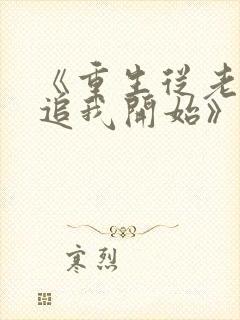 《重生從老
追我開始》
寒烈